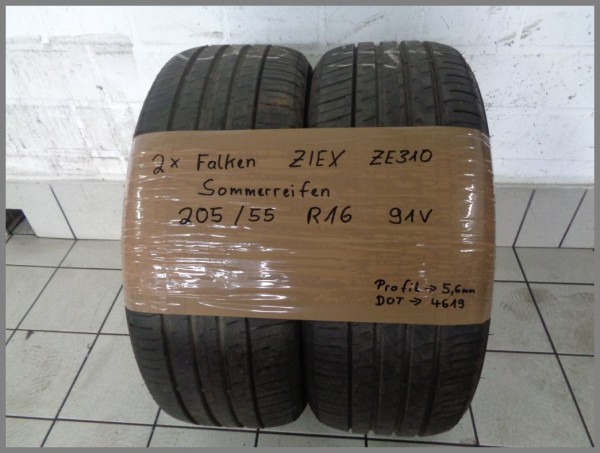 2x Falken ZIEX ZE310
Sommerreifen
205/55 R16 91V
Profil → 5,6mm
DOT → 4619